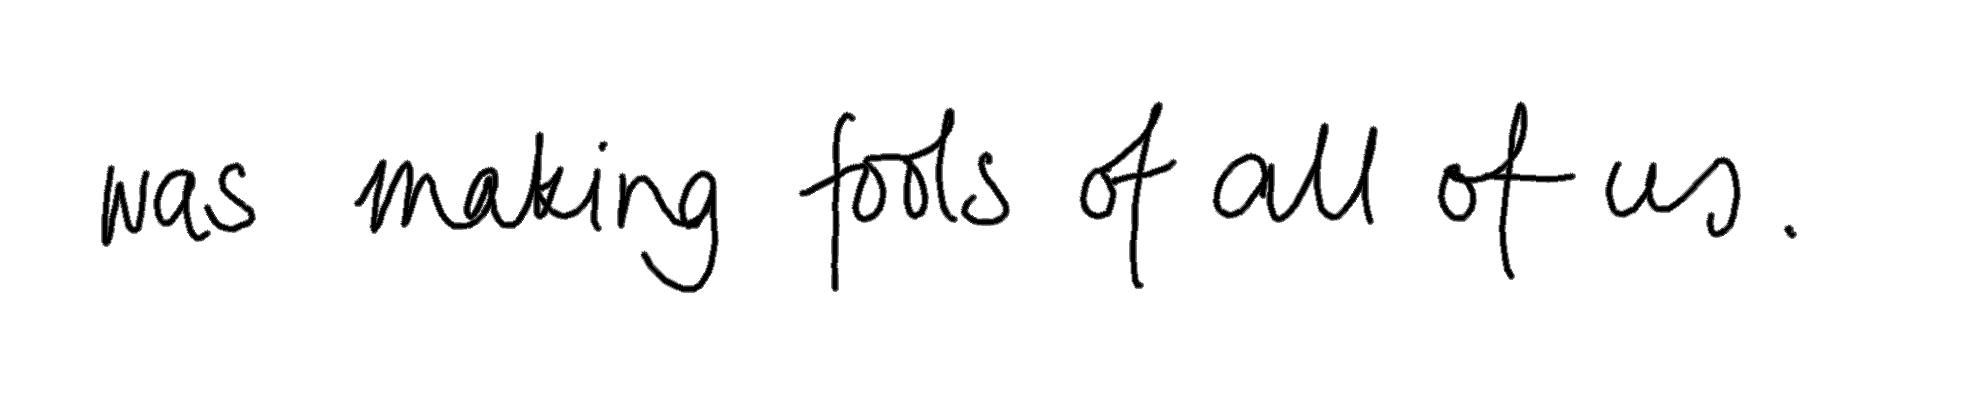 was making fools of all of us.